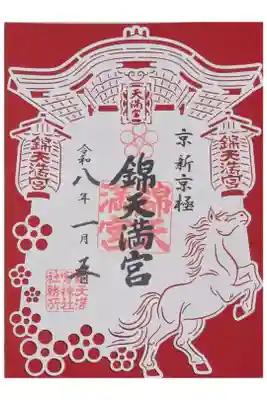 天満宮
錦天満宮
錦天満宮
京 新京極
錦天満宮
錦天
満宮
令和八年一月